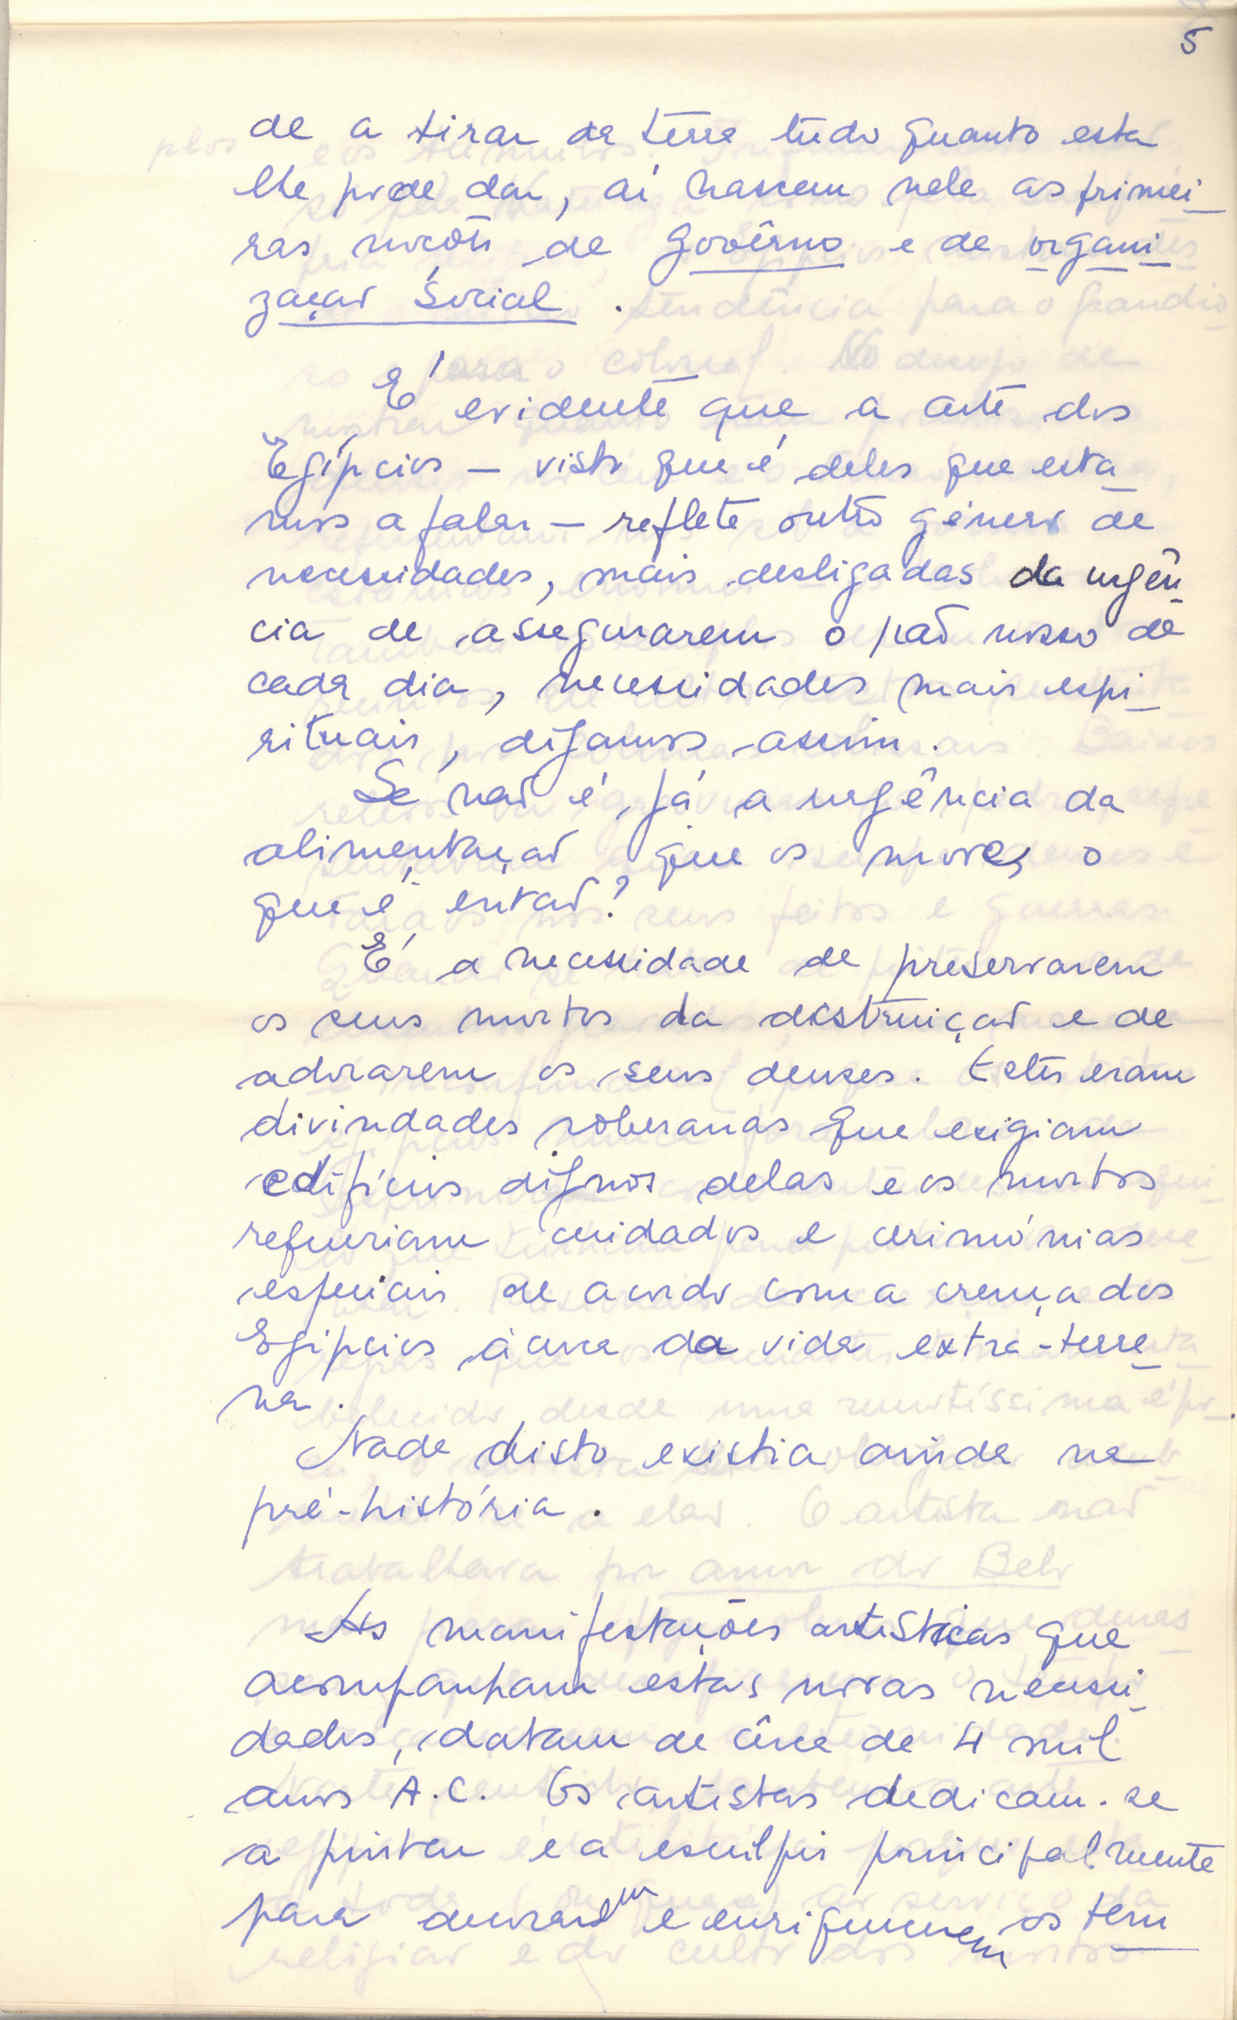 5
de a tirar da terra tudo quanto esta
lhe pode dar, aí nascem nele as primei-
ras noções de Govêrno e de organi-
zação Social.
É evidente que a arte dos
Egípcios — visto que é deles que esta-
mos a falar — reflete outro género de
necessidades, mais desligadas da urgên-
cia de assegurarem o pão nosso de
cada dia, necessidades mais espi-
rituais, digamos assim.
Se não é já a urgência da
alimentação que os move, o
que é então?
É a necessidade de preservarem
os seus mortos da destruição e de
adorarem os seus deuses. Estes eram
divindades soberanas que exigiam
edifícios dignos delas e os mortos
requeriam cuidados e cerimónias
especiais de acordo com a crença dos
Egípcios àcerca da vida extra-terre-
na.
Nada disto existia ainda na
pré-história.
As manifestações artísticas que
acompanham estas novas necessi-
dades, datam de cêrca de 4 mil
anos A.C. Os artistas dedicam-se
a pintar e a esculpir principalmente
para decorarem e enriquecerem os tem-